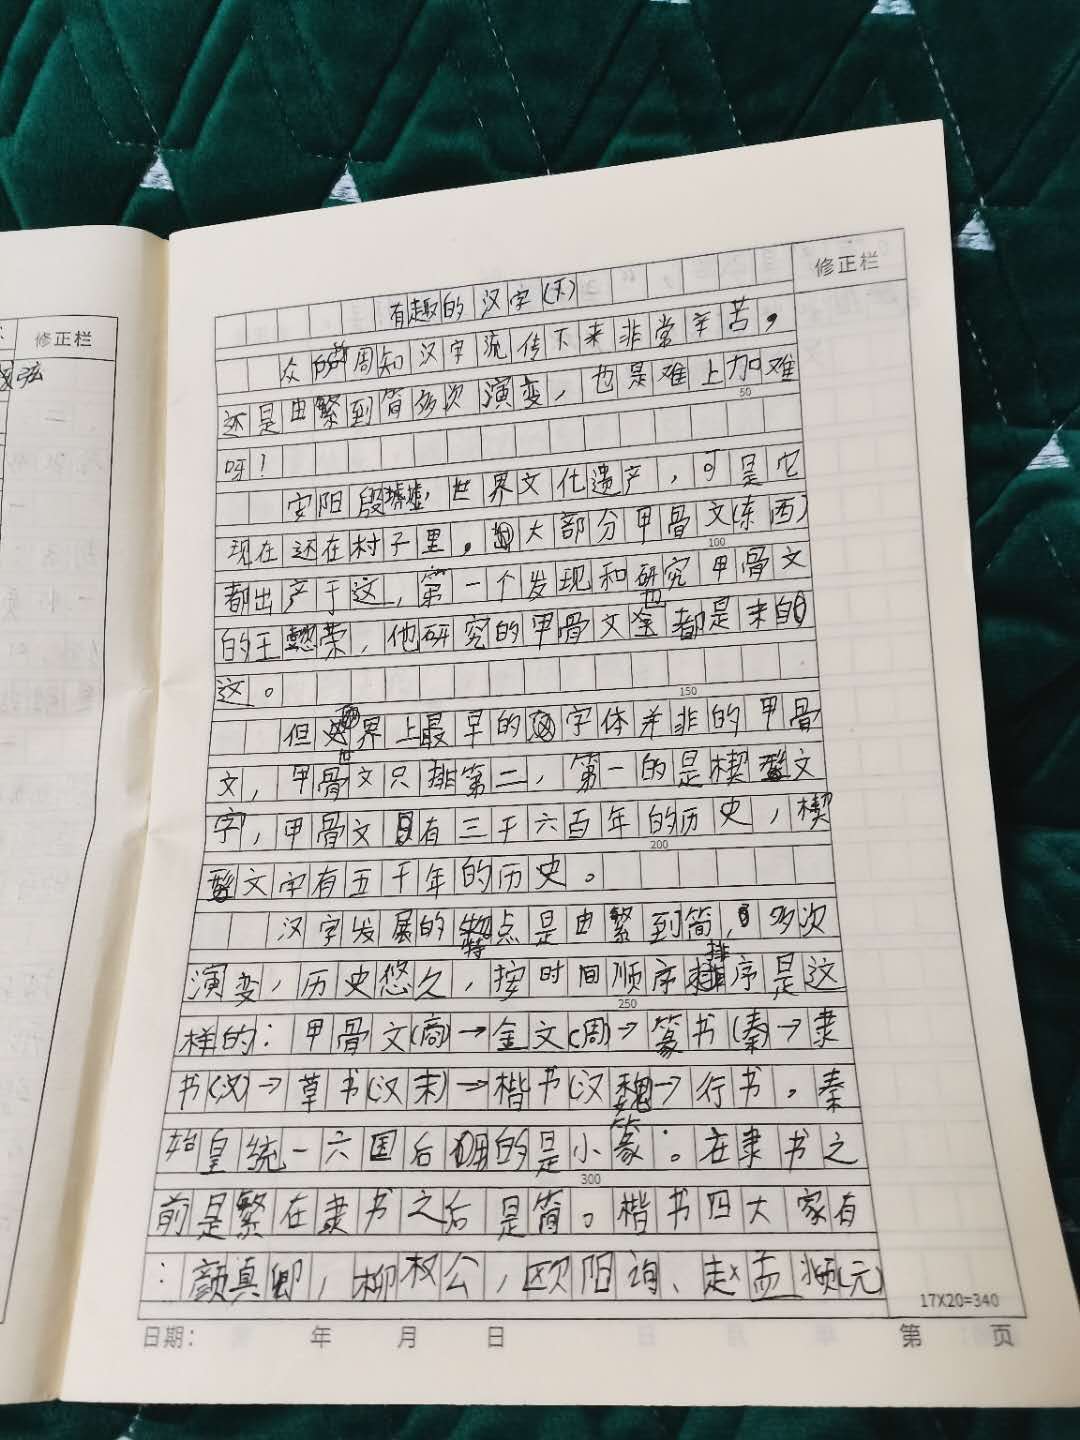 修正栏
弦
修正栏
有趣的汉字(下)
众所周知汉字流传下来非常辛苦，
还是由繁到简多次演变，也是难上加难
50
呀！
安阳殷墟，世界文化遗产，可是它
现在还在村子里。大部分甲骨文(东西)
100
都出产于这，第一个发现和研究甲骨文
的王懿荣，他研究的甲骨文也都是来自
这。
150
但世界上最早的字体并非的甲骨
文，甲骨文只排第二，第一的是楔型文
字，甲骨文有三千六百年的历史，楔
200
型文字有五千年的历史。
汉字发展的特点是由繁到简，多次
演变，历史悠久，按时间顺序排序是这
250
样的：甲骨文(商)→金文(周)→篆书(秦)→隶
书(汉)→草书(汉末)→楷书(汉魏→行书。秦
始皇统一六国后用的是小篆。在隶书之
300
前是繁在隶书之后是简。楷书四大家有
：颜真卿，柳权公，欧阳询、赵孟頫(元)
17X20=340
日期： 年 月 日 第 页